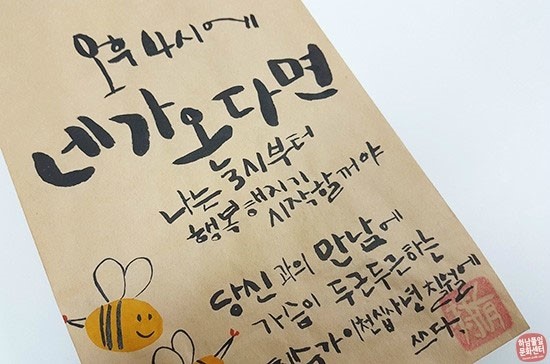 오후 4시에
네가 온다면
나는 3시부터
행복해지기
시작할거야
당신과의 만남에
가슴이 두근두근하는
이천십사년 칠월에
쓰다.
하남풀잎
문화센터